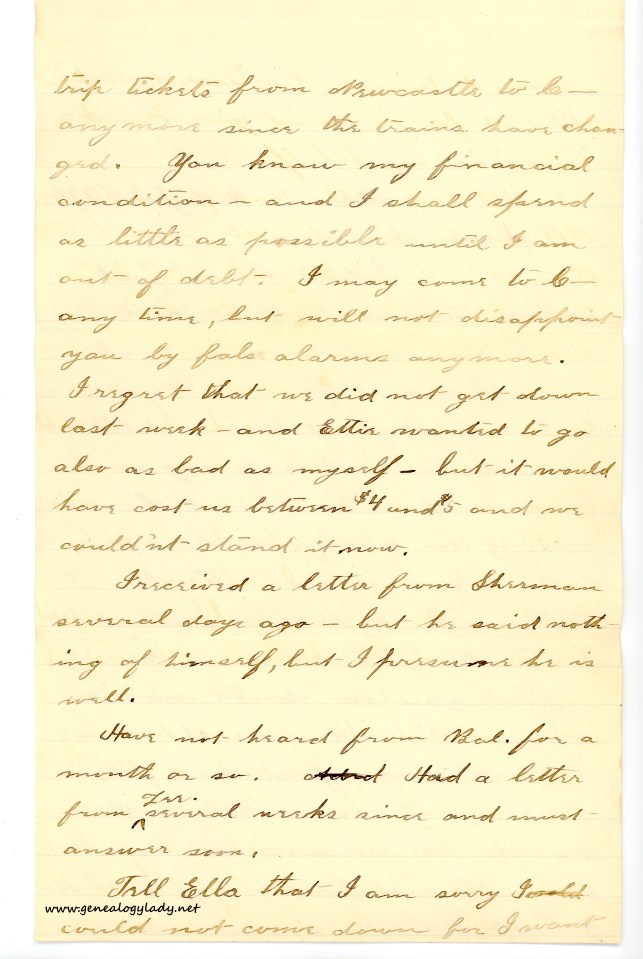 trip tickets from Newcastle to C—
any more since the trains have chan-
ged. You know my financial
condition — and I shall spend
as little as possible until I am
out of debt. I may come to C—
any time, but will not disappoint
you by fals alarms any more.
I regret that we did not get down
last week — and Ettie wanted to go
also as bad as myself — but it would
have cost us between $4 and $5 and we
could'nt stand it now.
I received a letter from Sherman
several days ago — but he said noth-
ing of himself, but I presume he is
well.
Have not heard from Bal. for a
month or so. Had a letter
from several weeks since and must
answer soon.
Tell Ella that I am sorry I
could not come down for I want
www.genealogylady.net